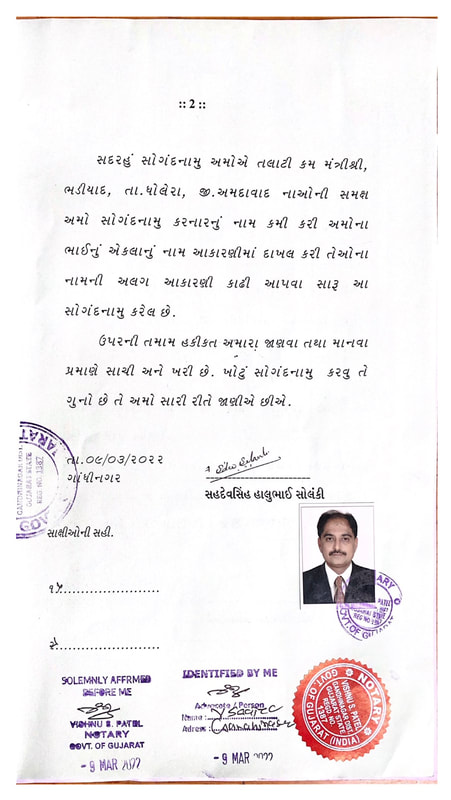 :: 2 ::
સદરહું સોગંદનામુ અમોએ તલાટી કમ મંત્રીશ્રી,
ભડીયાદ, તા.ધોલેરા, જી.અમદાવાદ નાઓની સમક્ષ
અમો સોગંદનામુ કરનારનું નામ કમી કરી અમોના
ભાઈનું એકલાનું નામ આકારણીમાં દાખલ કરી તેઓના
નામની અલગ આકારણી કાઢી આપવા સારૂ આ
સોગંદનામુ કરેલ છે.
ઉપરની તમામ હકીકત અમારા જાણવા તથા માનવા
પ્રમાણે સાચી અને ખરી છે. ખોટું સોગંદનામુ કરવુ તે
ગુનો છે તે અમો સારી રીતે જાણીએ છીએ.
તા.૦૯/૦૩/૨૦૨૨
ગાંધીનગર
સહદેવસિંહ હાલુભાઈ સોલંકી
સાક્ષીઓની સહી.
૧
૨
SOLEMNLY AFFRMED
BEFORE ME
VISHNU S. PATEL
NOTARY
GOVT. OF GUJARAT
- 9 MAR 2022
IDENTIFIED BY ME
Advocate / Person
Name :
Adress :
- 9 MAR 2022
NOTARY
VISHNU S. PATEL
GANDHINAGAR DIST.
GUJARAT STATE
REGD. NO.
1387
GOVT. OF GUJARAT (INDIA)
GUJARAT STATE
REG NO. 1387
GOVT. OF GUJARAT